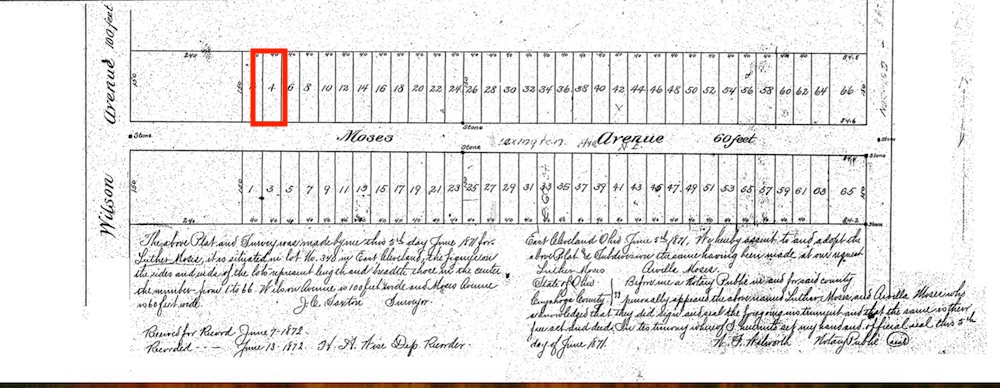 Wilson Avenue 100 feet
240 40 40 40 84.5
150 150 4 6 8 10 12 14 16 18 20 22 24 150 26 28 30 32 34 36 38 40 42 44 46 48 50 52 54 56 58 60 62 64 66 150
84.6
Stone Stone Stone
Moses Avenue 60 feet
Lexington Ave N.E.
Stone 84.4 Stone
150 150 1 3 5 7 9 11 13 15 17 19 21 23 150 25 27 29 31 33 35 37 39 41 43 45 47 49 51 53 55 57 59 61 63 65 150
240 40 40 40 84.2 Stone
The above Plat and Survey was made by me this 5th day June 1871 for
Luther Moses, it is situated in lot No. 348 in East Cleveland, the figures on
the sides and ends of the lots represent length and breadth, those in the center
the number from 1 to 66. Wilson Avenue is 100 feet wide and Moses Avenue
is 60 feet wide.
J.C. Saxton Surveyor.
Received for Record June 7 1872
Recorded - - - June 13 1872 H. A. Wise Dep. Recorder.
East Cleveland Ohio June 5th 1871. We hereby assent to and adopt the
above Plat & Subdivision the same having been made at our request
Luther Moses Arvilla Moses
State of Ohio } Before me a Notary Public in and for said county
Cuyahoga County } personally appeared the above named Luther Moses, and Arvilla Moses who
acknowledged that they did sign and seal the foregoing instrument and that the same is their
free act and deed, In testimony whereof I hereunto set my hand and official seal this 5th
day of June 1871. Notary Public seal